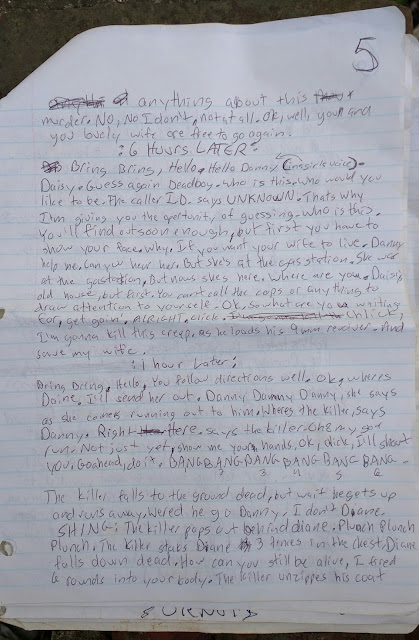 5
anything about this
murder. No, No I don't, not at all. Ok, well, you and
you lovely wife are free to go again.
:6 HOURS LATER:
Bring Bring, Hello, Hello Danny (insirieuvoice)-
Daisy. Guess again Deadboy. who is this. who would you
like to be. The caller I.D. says UNKNOWN. Thats why
I'm giving you the oportunity of guessing. who is this.
You'll find out soon enough, but first you have to
show your face. why. If you want your wife to live. Danny
help me. Can you hear her. But she's at the gas station. She was
at the gasstation, But now shes here. Where are you. Daisi's
old house, but first. You can't call the cops or anything to
draw attention to yourself. Ok. so what are you writing
for, get going. ALRIGHT, click. Unclick,
I'm gonna kill this creep. as he loads his 9mm revolver. And
save my wife.
:1 hour Later:
Bring Bring, Hello, You follow directions well. Ok, wheres
Daine. I'll send her out. Danny Danny Danny, she says
as she comes running out to him. Wheres the killer, says
Danny. Right Here. says the killer. Oh my god
run. Not just yet, show me your hands. Ok, dick, I'll shoot
you. Goahead, do it. BANG BANG BANG BANG BANG BANG -
2 3 4 5 6
The killer falls to the ground dead, but wait he gets up
and runs away. Wered he go Danny, I don't Diane.
SHING: The killer pops out behind diane. Plunch Plunch
Plunch. The killer stabs Diane 3 times in the chest. Diane
falls down dead. How can you still be alive, I fired
6 rounds into your body. The killer unzippes his coat